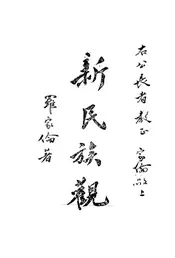 右公長者教正 家倫敬上
新民族觀
羅家倫著